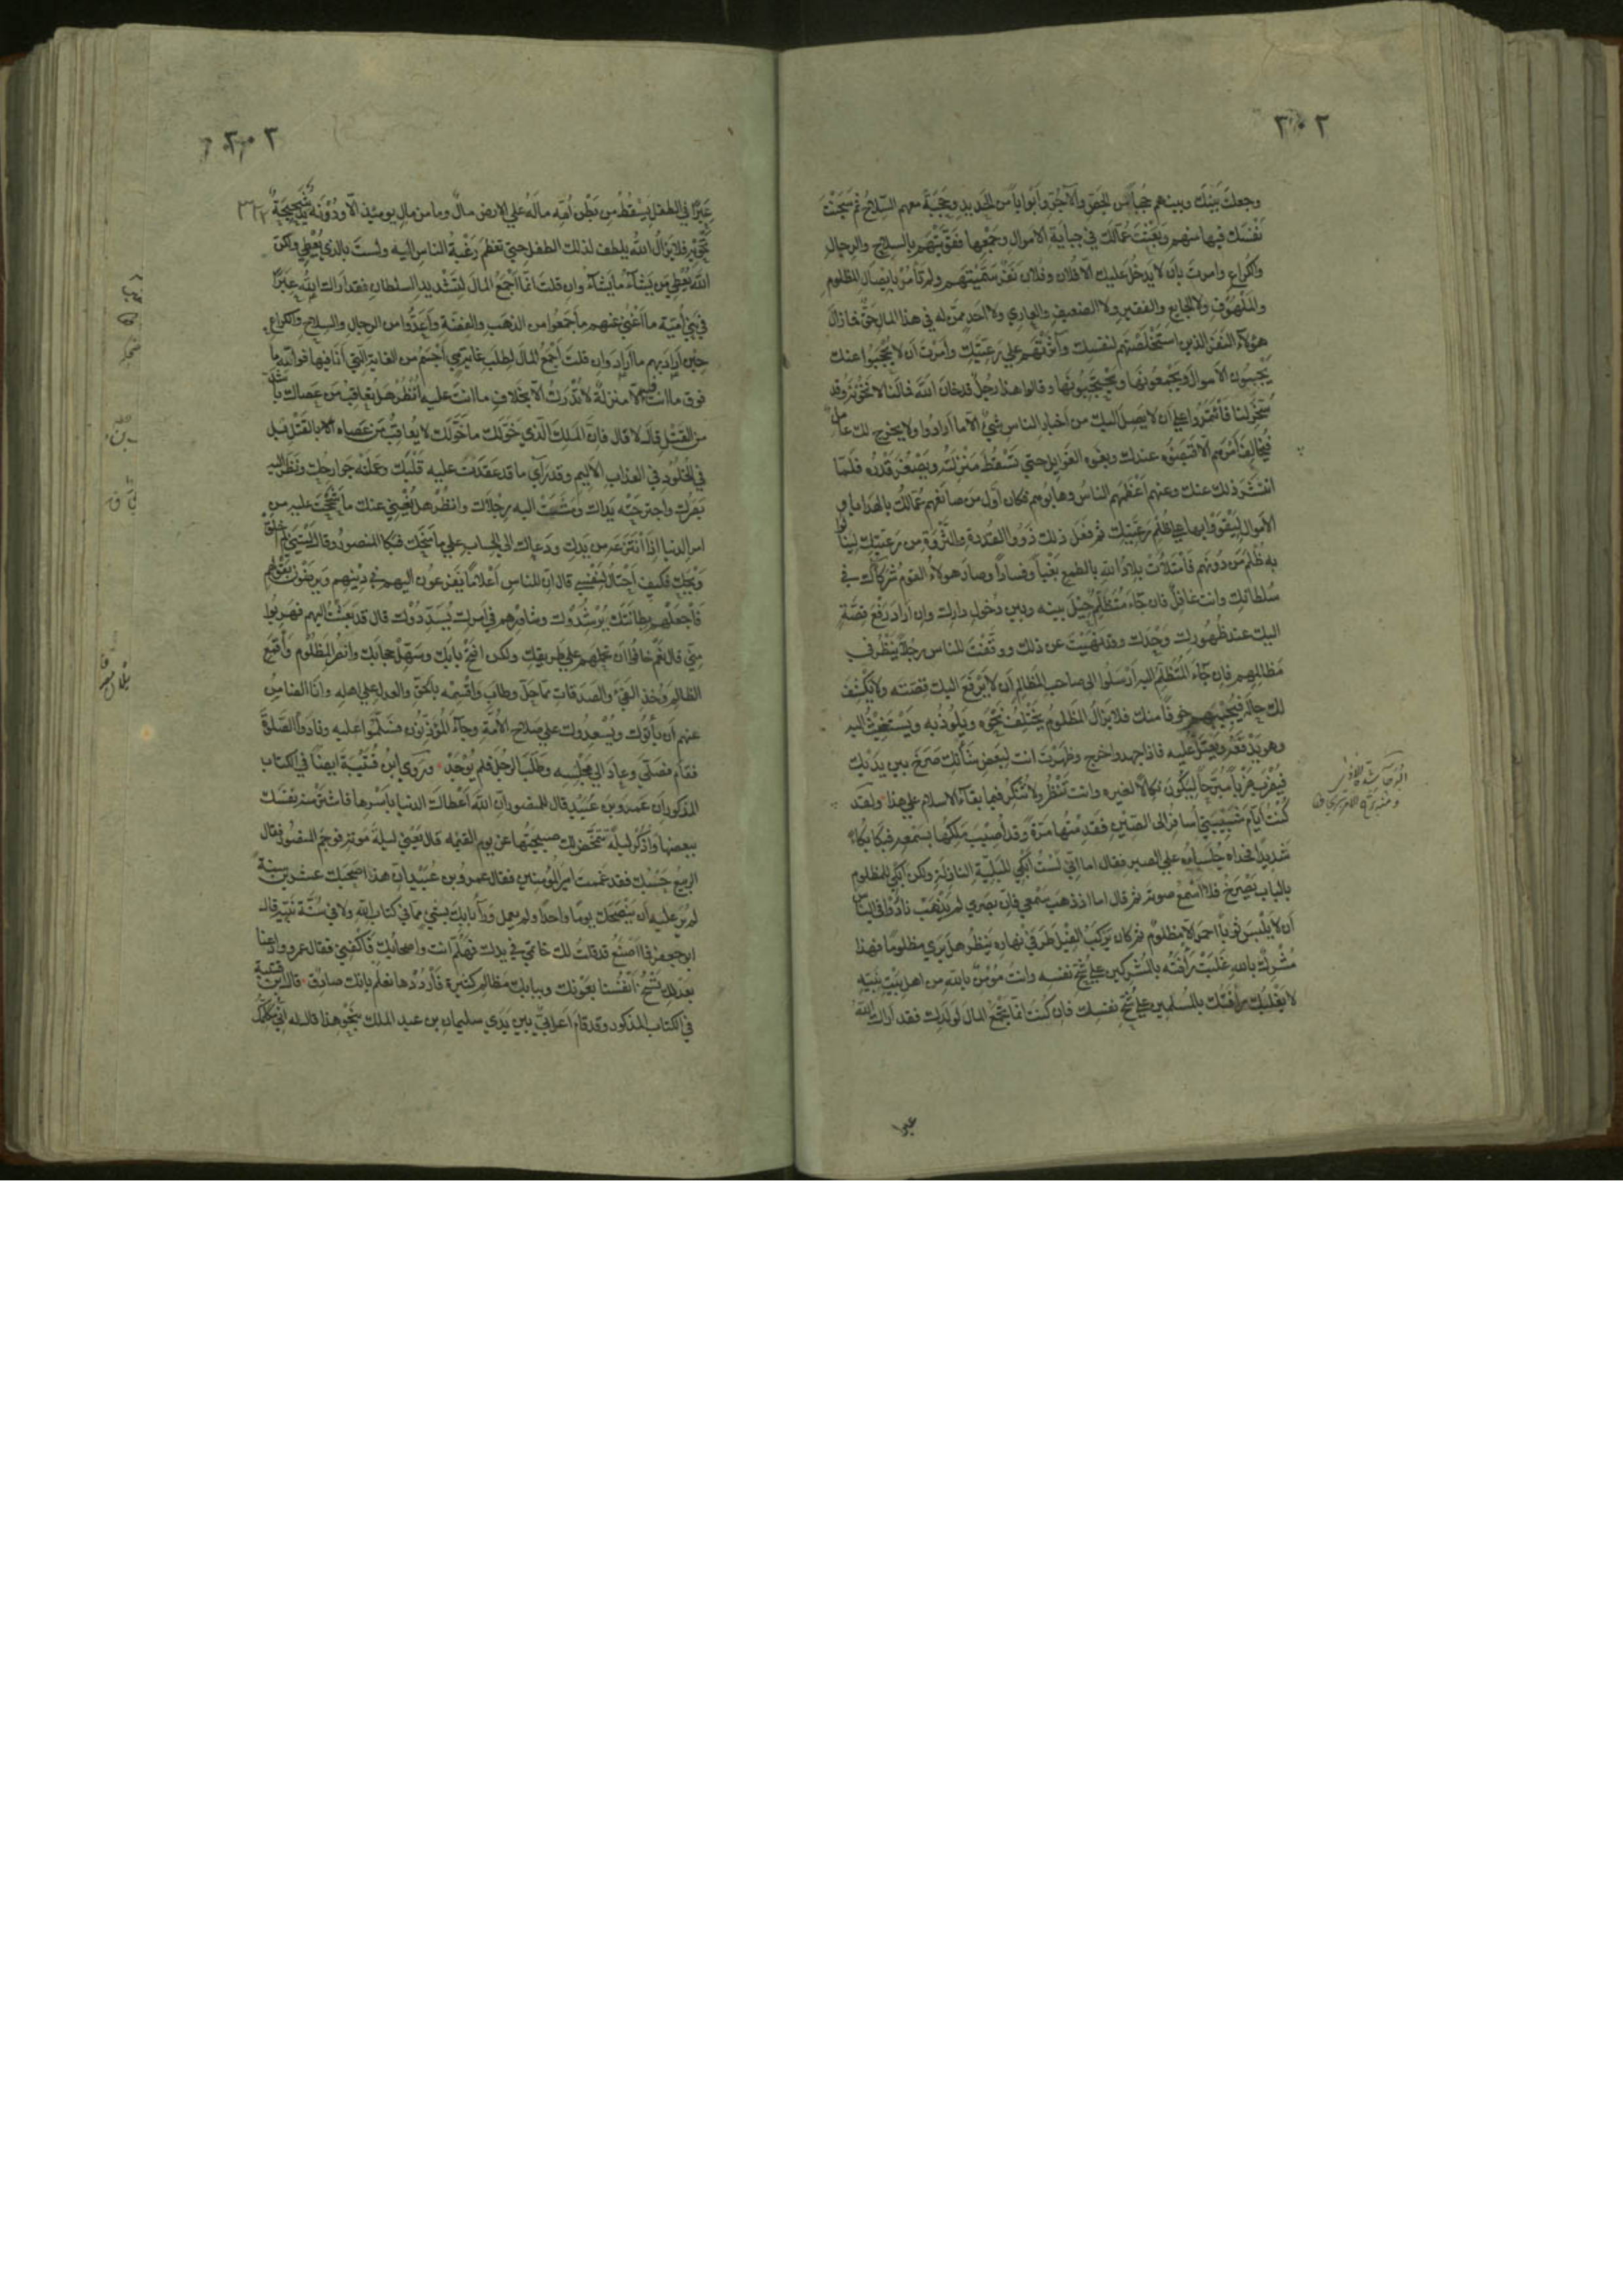 ٣٠٢
وجعلتَ بَيْنَكَ وبينهم حُجُبًا من الجَصّ والآجُرّ وأبوابًا من الحديد وحَجَبَةً معهم السّلاحُ ثم سَجَنْتَ
نفسَك فيها منهم وبَعَثْتَ عُمّالَك في جباية الاموال وجَمْعِها فقَوَّيْتَهم بالسلاح والرجال
والكراع وامرتَ بان لا يدخُلَ عليك الّا فُلان وفلان نَفَرٌ سَمَّيْتَهم ولم تأمُرْ بايصال المظلوم
والمَلهُوف ولا الجايع والفقير ولا الضعيف والعاري ولا احد ممّن له في هذا المال حقٌّ فما زال
هؤلآء النَفَر الذين استخلَصْتَهم لنفسك وآثَرْتَهم علي رعيّتك وأمرتَ أن لا يُحْجَبُوا عنك
يَجْبُون الاموالَ ويَجْمَعُونَها ويَحْتَجِبُونَها وقالوا هذا رجُلٌ قد خانَ اللهَ فما لنا لا نَخُونُه وقد
سَخَّرَ لنا فأتَمَرُوا علي أن لا يَصِلَ اليك من أخبار الناس شئٌ الّا ما أرادوا ولا يخرج لك عاملٌ
فيُخالِفَ أمْرَهم الّا عندك وبغوه الغوايل حتي تَسْقُطَ مَنْزِلَتُه ويَصْغُرَ قَدْرُه فلمّا
انتشرَ ذلك عنك وعنهم أعْظَمَهم الناسُ وهابُوهم فكان أوّلَ من صانَعَهم عُمّالُك بالهدايا و
الاموال لِيَقْوَوْا بها علي ظلم رعيّتك ثم فَعَلَ ذلك ذَوُو القُدرة والثَّرْوَة من رعيّتك لينالوا
به ظلمَ مَن دُونَهم فامتلأت بلادُ الله بالطمع بَغْياً وفسادًا وصار هولاء القومُ شركآءك في
سُلطانك وانت غافلٌ فان جآء مُتَظَلِّمٌ حِيْلَ بينه وبين دُخول دارك وان أرادَ رَفْعَ قِصَّةٍ
اليك عند ظُهُورك وَجَدَك وقد نَهَيْتَ عن ذلك ووَقَفْتَ للناس رجُلًا يَنْظُر في
مَظالِمِهم فان جآء المُتَظَلِّمُ اليه أرْسَلُوا الى صاحب المَظالم أن لا يَرْفَعَ اليك قصَّتَه ولا يَكْشِفَ
لك حالَه فيُجِيبُهم خوفًا منك فلا يزال المَظلومُ يَخْتَلِفُ نَحْوَه ويَلُوذُ به ويَسْتَغِيثُ اليه
وهو يَدْفَعُه ويَعْتَلُّ عليه فاذا جهد واخرج وظَهَرْتَ انت لبعض شأنك صَرَخَ بين يدَيْك
فيُضْرَبُ ضَرْبًا مُبَرِّحًا ليكُونَ نكالًا لغيره وانت تَنْظُر ولا تُنْكِرُ فما بقآء الاسلام علي هذا ولقد
كُنْتُ أيّامَ شَبِيْبَتِي أُسافِرُ الى الصّين فقَدِمْتُها مَرّةً وقد أُصِيْبَ مَلِكُها بسَمْعِه فبكا بُكآءً
شديدًا جُلَساؤه علي الصبر فقال اما إنّي لَسْتُ أبْكِي للبَلِيّة النازلة ولكن أبكي لمظلوم
بالباب يَصْرَخُ فلا أسْمَعُ صوتَه ثم قال اما اذ ذهَبَ سَمْعِي فانّ بَصَري لم يَذْهَبْ نادُوا في الناس
أن لا يَلْبَسَ ثوبًا أحمرَ الّا مَظلومٌ ثم كان يَرْكَبُ الفِيْلَ طَرَفَيْ نهاره يَنظُر هل يَرَي مظلومًا فهذا
مُشْرِكٌ بالله غَلَبَتْ رأفَتُه بالمُشركين علي شُحّ نفسه وانت مُؤْمِنٌ بالله من اهل بَيْتِ نَبِيِّه
لا يَغْلِبُك رأفَتُك بالمُسلمين علي شُحّ نفسك فان كنتَ انّما تَجْمَعُ المالَ لولدك فقد أراك اللهُ
عبرا
٣٠٣
عِبَرًا في الطفل يَسْقُطُ من بَطْن اُمّه ما لَه علي الارض مالٌ وما من مالٍ يومئذٍ الّا ودُوْنَه يدٌ شَحِيحَةٌ
تَحْوِيْه فلا يزالُ اللهُ يلطف لذلك الطفل حتي تعظمَ رَغْبَةُ الناسِ اليه ولستَ بالذي يُعْطِي ولكن
اللهَ يُعْطِي مَن يَشآءُ ما يَشآءُ وان قلتَ انّما أجْمَعُ المالَ لتَشْديد السلطان فقد أراك اللهُ عِبَرًا
في بَنِي اُمَيّة ما أغْنَي عنهم ما جَمَعُوا من الذهَب والفضّة وأعَدُّوا من الرجال والسلاح والكراع
حين أرادَ بهم ما أرادَ وان قلتَ أجْمَعُ المالَ لطلب غايةٍ هي أجْسَمُ من الغاية التي أنا فيها فوالله ما
فوق ما انت فيه الّا منزلةٌ لا تُدْرَكُ الّا بخلافِ ما انتَ عليه اُنْظُرْ هل تُعاقِبُ مَن عَصاك باشدّ
من القَتْل قالَ لا قال فانّ المَلِكَ الّذي خَوَّلَك ما خَوَّلَك لا يُعاقِبُ مَن عَصاه بالقَتْل بل
في الخُلُود في العذاب الاليم وقد رأي ما قد عَقَدَتْ عليه قَلْبُك وعَمِلَتْه جوارحُك ونَظَرَ اليه
بَصَرُك واجترحَتْه يداك ومَشَتْ اليه رِجْلاك وانظُرْ هل يُغْنِي عنك ما شَحَحْتَ عليه من
امر الدنيا اذا انتَزَعَه من يدك ودَعاك الى الحساب علي ما مَنَحَك فبكا المنصورُ وقال لَيْتَنِي لم اُخْلَقْ
وَيْحَكَ فكيف أحتالُ لنفسِي قال انّ للناس أعْلامًا يَفْزَعُون اليهم في دِيْنهم ويَرْضَون بقولهم
فاجْعَلْهم بِطانَتَك يُرْشِدُوك وشاوِرْهم في أمرك يُسَدِّدُوْك قال قد بَعَثْتُ اليهم فهَرَبُوا
مِنّي قال نَعَم خافُوا أن تحملهم علي طريقك ولكن افتَحْ بابَك وسَهِّلْ حجابَك وانصُر المَظلُومَ وأقْمِع
الظالمَ وخُذ الفَيْءَ والصَدَقات ممّا حَلَّ وطابَ واقْسِمْه بالحَقّ والعدل علي اهله وانا الضامنُ
عنهم أن يأتُوْك ويُسْعِدُوك علي صَلاح الاُمّة وجآء المُؤَذِّنُون فسَلَّمُوا عليه ونادَوا الصَّلوةَ
فقام فصَلَّي وعادَ الي مَجْلِسِه وطَلَبَ الرجُلَ فلم يُوْجَدْ ورَوَي ابنُ قُتَيْبَة أيضًا في الكتاب
المذكور ان عَمرو بنَ عُبَيْد قال للمنصور انّ اللهَ أعْطاكَ الدنيا بأسْرِها فاشْتَرِ منه نفسَك
ببعضها واذْكُرْ ليلةً تَتَمَخَّضُ لك صبيحتُها عن يوم القيمة قال يَعْنِي ليلةَ مَوْتِه فوجَمَ المنصُور فقال
الربيعُ حَسْبُك فقد غممتَ اميرَ المُؤمنين فقال عمرو بن عُبَيْد انّ هذا صَحِبَك عشرين سنة
لم يَرَ عليه أن يَنْصَحَك يومًا واحدًا ولم يعمل ورآءَ بابك بشئٍ ممّا في كتاب الله ولا في سُنّة نَبِيّه قال
ابو جعفر فما أصْنَعُ قد قلتُ لك خاتَمِي في يدك فهَلُمَّ انت واصحابُك فاكْفِنِي فقال عمرو ادعنا
بعدلك تَسْخُ أنفُسُنا بعَوْنك وببابك مَظالمُ كثيرة فارْدُدْها نعلَمْ بانّك صادِقٌ قال ابن قتيبة
في الكتاب المذكور وقد قامَ أعرابيٌّ بين يَدَي سليمان بن عبد الملك بنَحْوِ هذا قال له إنّي مُكَلِّمُك